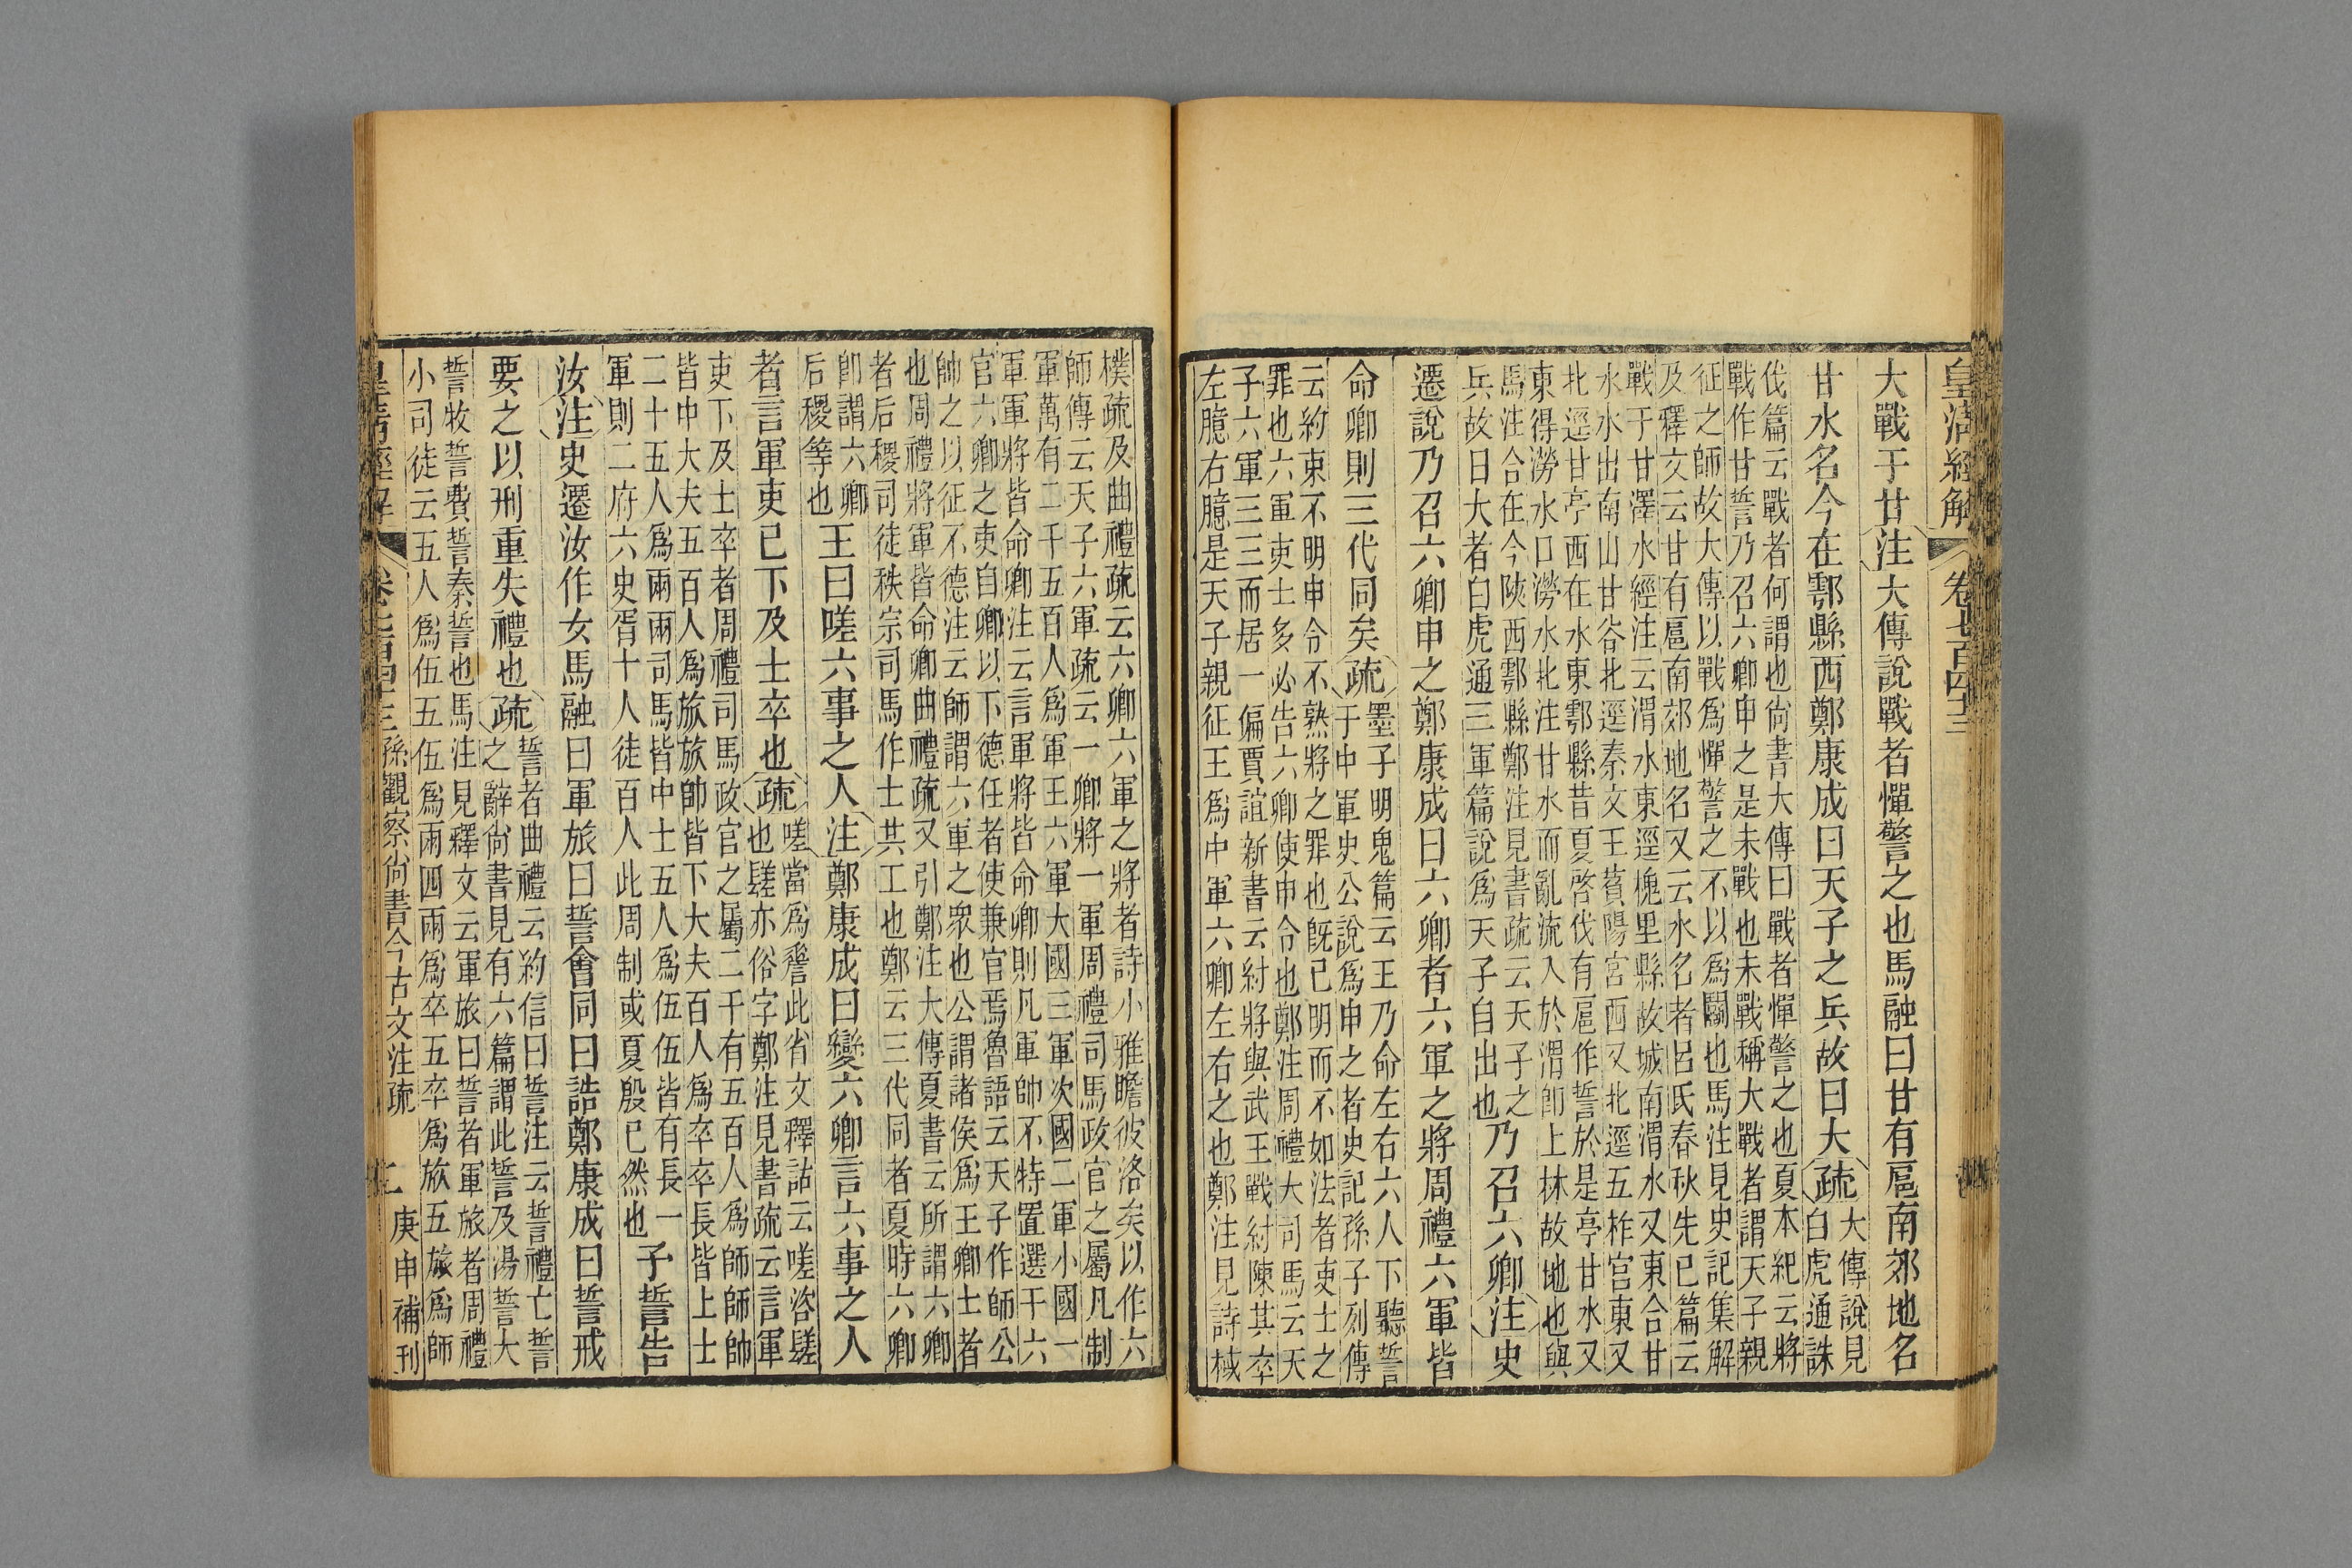 皇清經解 卷七百四十三
大戰于甘注大傳說戰者憚警之也馬融曰甘有扈南郊地名
甘水名今在鄠縣西鄭康成曰天子之兵故曰大疏大傳說見
白虎通誅
伐篇云戰者何謂也尙書大傳曰戰者憚警之也夏本紀云將
戰作甘誓乃召六卿申之是未戰也未戰稱大戰者謂天子親
征之師故大傳以戰爲憚警之不以爲鬬也馬注見史記集解
及釋文云甘有扈南郊地名又云水名者呂氏春秋先已篇云
戰于甘澤水經注云渭水東逕槐里縣故城南渭水又東合甘
水水出南山甘谷北逕秦文王萯陽宮西又北逕五柞宮東又
北逕甘亭西在水東鄠縣昔夏啓伐有扈作誓於是亭甘水又
東得澇水口澇水北注甘水而亂流入於渭卽上林故地也與
馬注合在今陝西鄠縣鄭注見書疏云天子之
兵故曰大者白虎通三軍篇說爲天子自出也乃召六卿注史
遷說乃召六卿申之鄭康成曰六卿者六軍之將周禮六軍皆
命卿則三代同矣疏墨子明鬼篇云王乃命左右六人下聽誓
于中軍史公說爲申之者史記孫子列傳
云約束不明申令不熟將之罪也旣已明而不如法者吏士之
罪也六軍吏士多必告六卿使申令也鄭注周禮大司馬云天
子六軍三三而居一偏賈誼新書云紂將與武王戰紂陳其卒
左臆右臆是天子親征王爲中軍六卿左右之也鄭注見詩棫
樸疏及曲禮疏云六卿六軍之將者詩小雅瞻彼洛矣以作六
師傳云天子六軍疏云一卿將一軍周禮司馬政官之屬凡制
軍萬有二千五百人爲軍王六軍大國三軍次國二軍小國一
軍軍將皆命卿注云言軍將皆命卿則凡軍帥不特置選于六
官六卿之吏自卿以下德任者使兼官焉魯語云天子作師公
帥之以征不德注云師謂六軍之衆也公謂諸侯爲王卿士者
也周禮將軍皆命卿曲禮疏又引鄭注大傳夏書云所謂六卿
者后稷司徒秩宗司馬作士共工也鄭云三代同者夏時六卿
卽謂六卿
后稷等也王曰嗟六事之人注鄭康成曰變六卿言六事之人
者言軍吏已下及士卒也疏嗟當爲𧪦此省文釋詁云嗟咨𨲠
也𨲠亦俗字鄭注見書疏云言軍
吏下及士卒者周禮司馬政官之屬二千有五百人爲師師帥
皆中大夫五百人爲旅旅帥皆下大夫百人爲卒卒長皆上士
二十五人爲兩兩司馬皆中士五人爲伍伍皆有長一
軍則二府六史胥十人徒百人此周制或夏殷已然也予誓告
汝注史遷汝作女馬融曰軍旅曰誓會同曰誥鄭康成曰誓戒
要之以刑重失禮也疏誓者曲禮云約信曰誓注云誓禮亡誓
之辭尙書見有六篇謂此誓及湯誓大
誓牧誓費誓秦誓也馬注見釋文云軍旅曰誓者軍旅者周禮
小司徒云五人爲伍五伍爲兩四兩爲卒五卒爲旅五旅爲師
皇淸經解 卷七百四十三 孫觀察尙書今古文注疏 七 庚申補刊